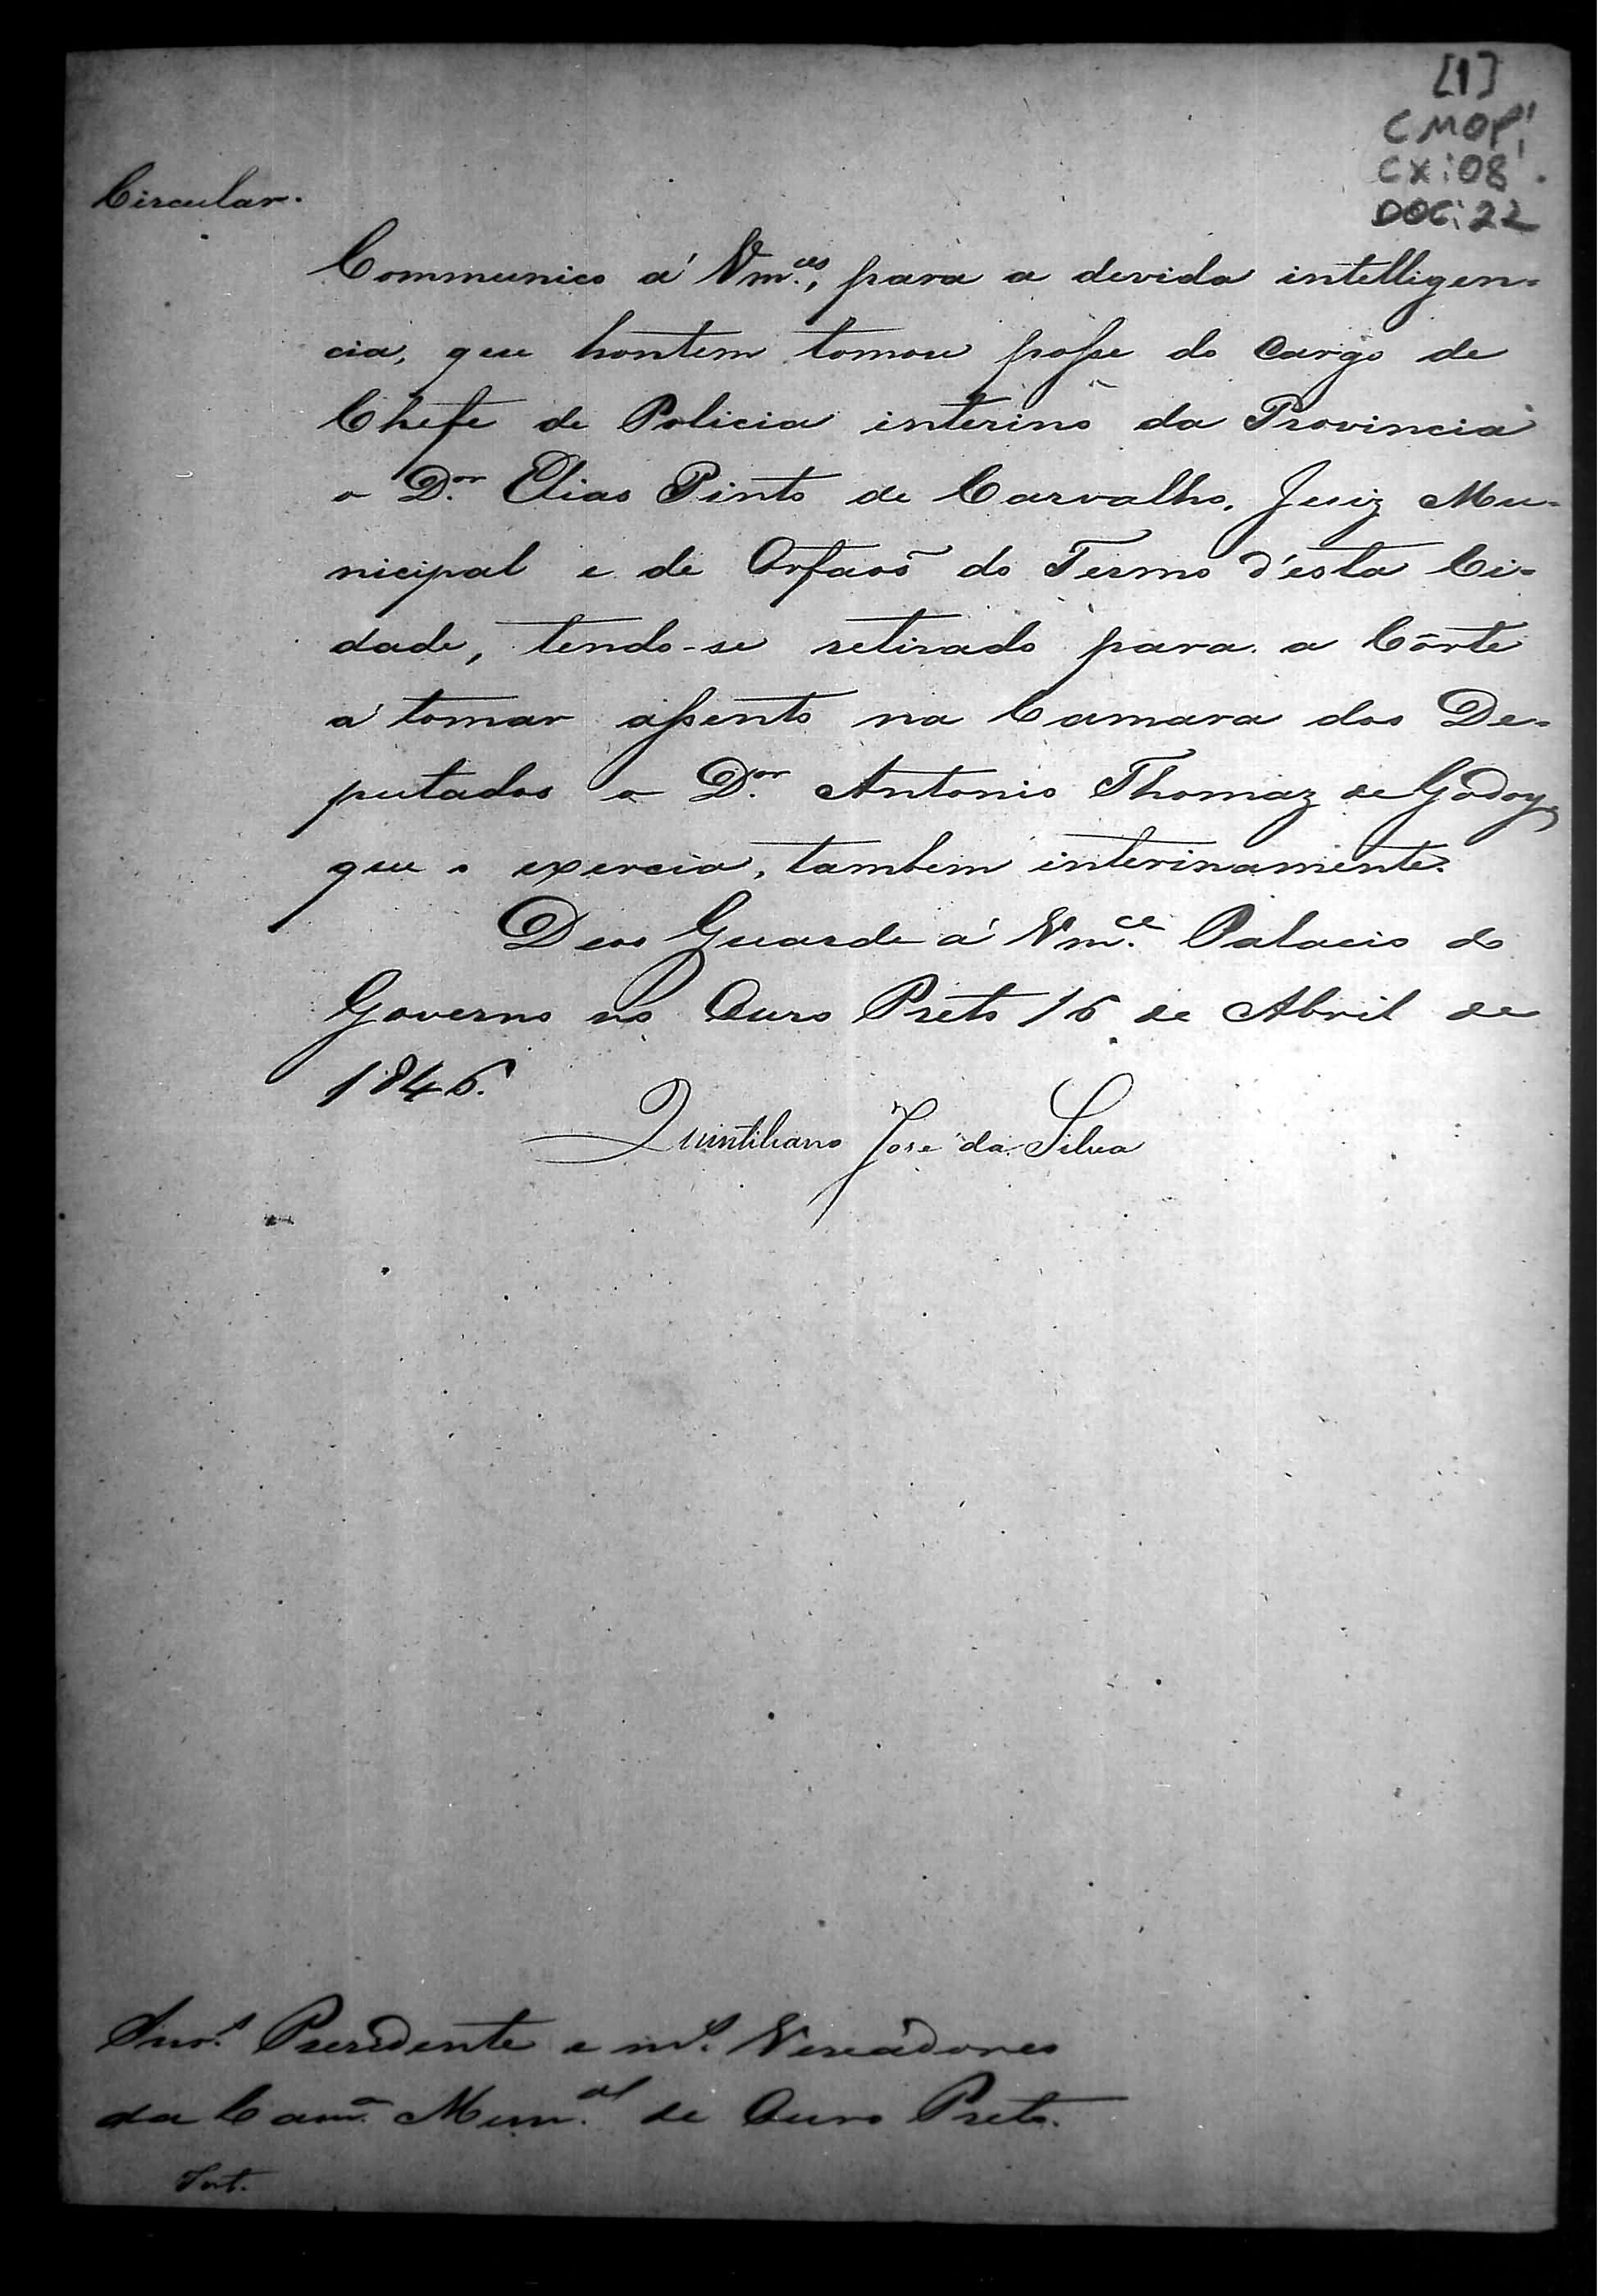 [1]
CMOP
CX:08
DOC:22
Circular.
Communico á Vm.ces, para a devida intelligen=
cia, que hontem tomou posse do Cargo de
Chefe de Policia interino da Provincia
o D.or Elias Pinto de Carvalho, Juiz Mu=
nicipal e de Orfaõs do Termo d'esta Ci=
dade, tendo-se retirado para a Côrte
á tomar assento na Camara dos De=
putados o D.or Antonio Thomaz de Godoy,
que o exercia, tambem interinamente.
Deos Guarde á Vm.ce Palacio do
Governo no Ouro Preto 16 de Abril de
1846.
Quintiliano José da Silva
Snr.s Presidente e m.s Vereadores
da Cam.a Mun.al de Ouro Preto.